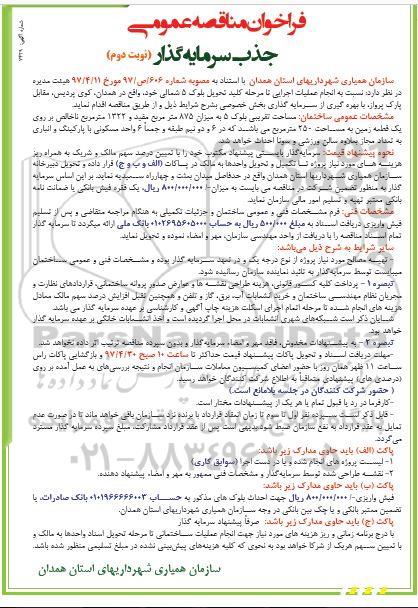 فراخوان مناقصه عمومی
جذب سرمایه‌گذار (نوبت دوم)
شماره آگهی:
سازمان همیاری شهرداریهای استان همدان با استناد به مصوبه شماره ۶۰۶/ص/۹۷ مورخ ۹۷/۴/۱۱ هیئت مدیره
در نظر دارد: نسبت به انجام عملیات اجرایی تا مرحله کلید تحویل بلوک ۵ شمالی خود، واقع در همدان، کوی پردیس، مقابل
پارک پرواز، با بهره گیری از سرمایه گذاری بخش خصوصی بشرح شرایط ذیل و از طریق مناقصه اقدام نماید.
مشخصات عمومی ساختمان: مساحت تقریبی بلوک ۵ به میزان ۸۷۵ متر مربع مفید و ۱۳۲۲ مترمربع ناخالص بر روی
یک قطعه زمین به مساحت ۲۵۰ مترمربع می باشد که در ۶ و دو نیم طبقه و جمعاً ۶ واحد مسکونی با پارکینگ و انباری
به تعداد مجاز بعلاوه سالن ورزشی و سونا احداث خواهد شد
نحوه پیشنهاد قیمت: سرمایه‌گذار بایستی پیشنهاد مکتوب خود را با تعیین درصد سهم مالک و شریک به همراه ریز
هزینه های مورد نیاز پروژه تا تکمیل و تحویل واحدها به مالک در پاکات (الف و ب و ج) قرار داده و تحویل دبیرخانه
سازمان همیاری شهرداریها استان همدان واقع در حدفاصل میدان بشت و چهارراه بسپارید نماید. بر این اساس سرمایه
گذار به منظور تضمین شرکت در مناقصه می بایست به میزان ۸۰۰/۰۰۰/۰۰۰ ریال، یک فقره فیش بانکی یا ضمانت نامه
بانکی معتبر تهیه و تسلیم امور مالی سازمان نماید.
مشخصات فنی: فرم مشخصات فنی و عمومی ساختمان و جزئیات تکمیلی به هنگام مراجعه متقاضی و پس از تسلیم
فیش واریزی دریافت اسناد به مبلغ ۵۰۰/۰۰۰ ریال به حساب ۰۱۰۲۶۹۵۶۰۵۰۰۰ بانک ملی ارائه میگردد تا سرمایه گذار
تمام اسناد مناقصه را با دریافت از واحد مهندسی سازمان، مهر و امضاء نموده و تحویل نماید.
سایر شرایط به شرح ذیل می‌باشد:
- تهیه مصالح مورد نیاز پروژه از نوع درجه یک و در تعهد سرمایه گذار بوده و مشخصات فنی و عمومی ساختمان
میبایست توسط سرمایه‌گذار به تائید نماینده سازمان رسانیده شود.
تبصره ۱ - پرداخت کلیه کسور قانونی، هزینه طراحی نقشه ها و عوارض صدور پروانه ساختمانی، قراردادهای نظارت و
مجریان نظام مهندسی ساختمان و خرید انشعابات آب، برق، گاز و تلفن و همچنین تقبل افزایش درصد سهم مالک معادل
هزینه های انجام شده تا مرحله اتمام اجرای اسکلت هزینه چاپ آگهی و کارشناسی بر عهده سرمایه گذار می باشد
شایان ذکر است شبکه‌های شهری انشعابات در محل اجرا گردیده است و اخذ انشعابات خانگی بر عهده سرمایه گذار
خواهد بود.
تبصره ۲ - به پیشنهادات مخدوش، فاقد مهر و امضاء سرمایه‌گذار و بدون سپرده مناقصه ترتیب اثر داده نخواهد شد.
-مهلت دریافت اسناد و تحویل پاکات پیشنهاد قیمت حداکثر تا ساعت ۱۰ صبح ۹۷/۴/۳۰ و بازگشایی پاکات راس
ساعت ۱۱ ظهر همان روز با حضور اعضای کمیسیون معاملات سازمان انجام و نتیجه بررسی‌های به عمل آمده بر روی
(درصدی های) پیشنهادی متعاقباً به اطلاع شرکت کنندگان خواهد رسید.
( حضور شرکت کنندگان در جلسه بلامانع است.)
-کارفرما در رد یا قبول تمام یا هر یک از پیشنهادات مختار است.
- قابل ذکر است سپرده نفر اول تا سوم تا زمان انعقاد قرارداد با برنده نزد سازمان باقی خواهد ماند تا در صورت عدم
تمایل به عقد قرارداد به نفع سازمان ضبط شود. بدیهی است پس از عقد قرارداد مشارکت، مبلغ سپرده سرمایه گذار مسترد
می‌گردد
پاکت (الف) باید حاوی مدارک زیر باشد:
۱- لیست پروژه های انجام شده و یا در دست اجرا (سوابق کاری)
۲- نقشه های طراحی شده توسط سرمایه‌گذار و مشخصات فنی ممهور به مهر و امضاء پیشنهاد دهنده.
پاکت (ب) باید حاوی مدارک زیر باشد:
فیش واریزی ۸۰۰/۰۰۰/۰۰۰ ریال جهت احداث بلوک های مذکور به حساب ۰۱۰۱۹۶۶۶۶۶۰۰۳ بانک صادرات، یا
تضمین معتبر بانکی و یا چک بین بانکی در وجه سازمان همیاری شهرداریهای استان همدان.
پاکت (ج) باید حاوی مدارک زیر باشد: صرفاً پیشنهاد سرمایه گذار
با درج برنامه زمانی و ریز هزینه های مورد نیاز جهت انجام عملیات ساختمانی تا مرحله تحویل اسناد واحدها به مالک و
با تعیین سهم هریک از شرکا خواهد بود به نحوی که کلیه هزینه‌های پیش‌بینی نشده در مبلغ تسلیمی منظور شده باشد.
سازمان همیاری شهرداریهای استان همدان
۰۲۱-۸۸۳۴۹۶۷۰